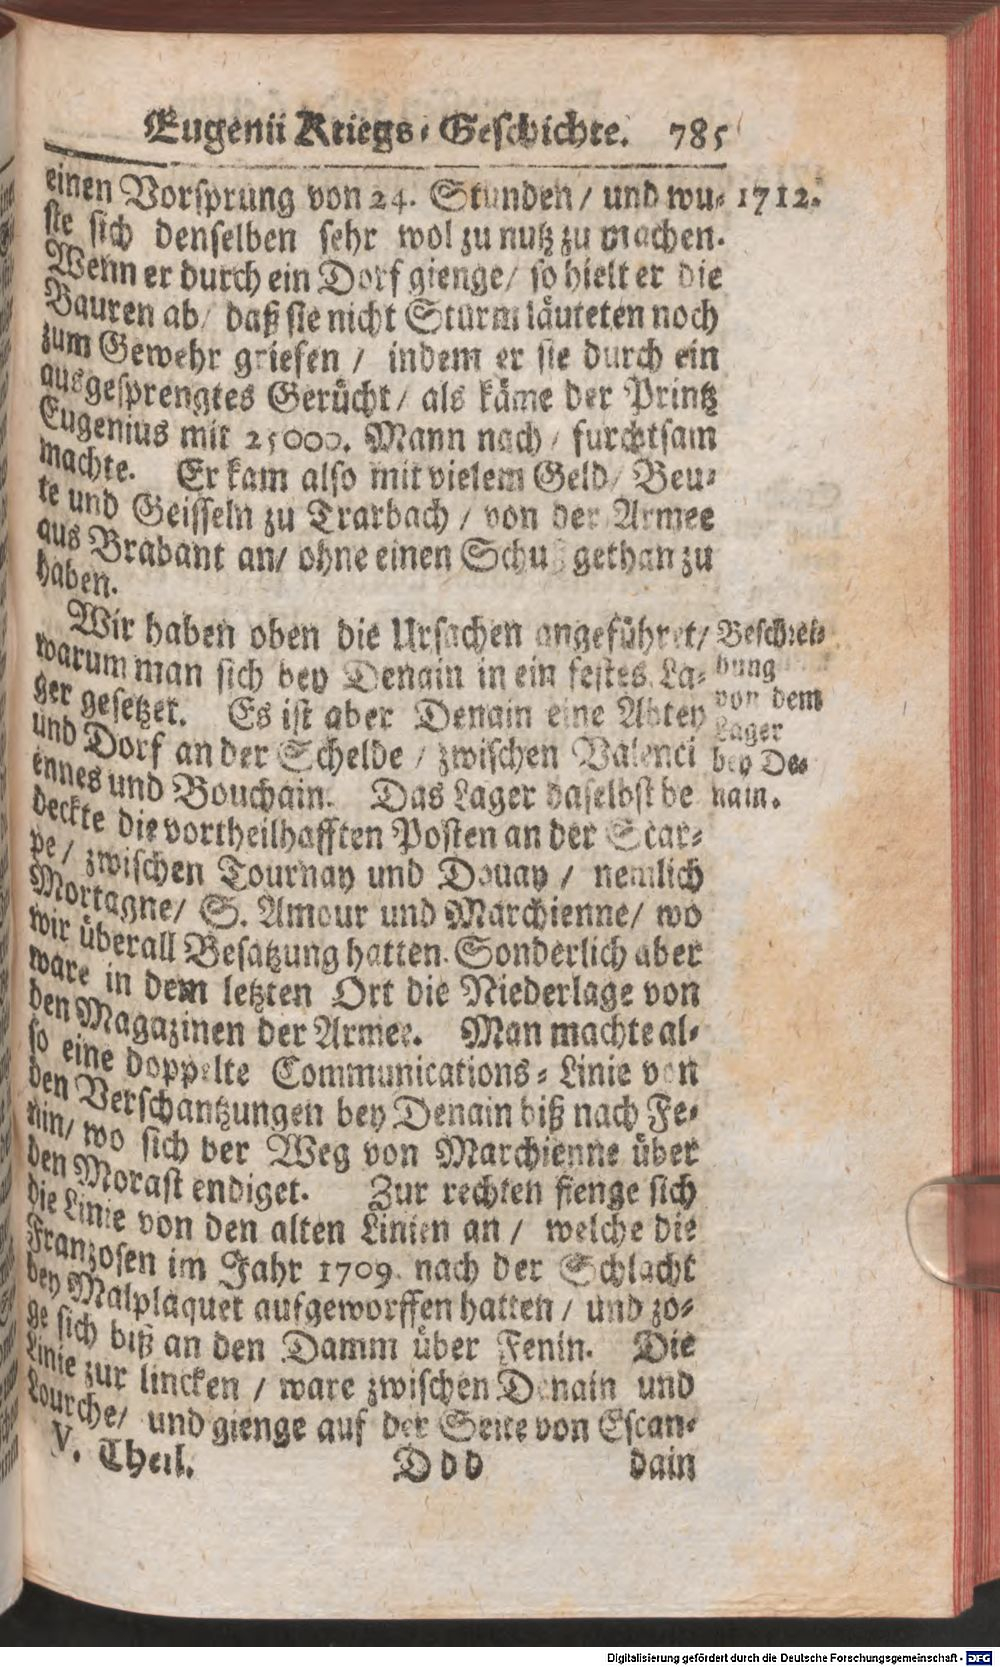 Eugenii Kriegs-Geschichte. 785
einen Vorsprung von 24. Stunden / und wu- 1712.
ste sich denselben sehr wol zu nutz zu machen.
Wenn er durch ein Dorf gienge / so hielt er die
Bauren ab / daß sie nicht Sturm läuteten noch
zum Gewehr griefen / indem er sie durch ein
ausgesprengtes Gerücht / als käme der Printz
Eugenius mit 25000. Mann nach / furchtsam
machte. Er kam also mit vielem Geld / Beu-
te und Geisseln zu Trarbach / von der Armee
aus Brabant an / ohne einen Schuß gethan zu
haben.
Wir haben oben die Ursachen angeführet /
warum man sich bey Denain in ein festes La-
ger gesetzet. Es ist aber Denain eine Abtey
und Dorf an der Schelde / zwischen Valenci
ennes und Bouchain. Das Lager daselbst be
deckte die vortheilhafften Posten an der Scar-
pe / zwischen Tournay und Douay / nemlich
Mortagne / S. Amour und Marchienne / wo
wir überall Besatzung hatten. Sonderlich aber
ware in dem letzten Ort die Niederlage von
den Magazinen der Armee. Man machte al-
so eine doppelte Communications-Linie von
den Verschantzungen bey Denain biß nach Fe-
nin / wo sich der Weg von Marchienne über
den Morast endiget. Zur rechten fienge sich
die Linie von den alten Linien an / welche die
Franzosen im Jahr 1709. nach der Schlacht
bey Malplaquet aufgeworffen hatten / und zo-
ge sich biß an den Damm über Fenin. Die
Linie zur lincken / ware zwischen Denain und
Lourche / und gienge auf der Seite von Escan-
V. Theil. Ddd dain
Beschrei-
bung
von dem
Lager
bey De-
nain.
Digitalisierung gefördert durch die Deutsche Forschungsgemeinschaft - DFG